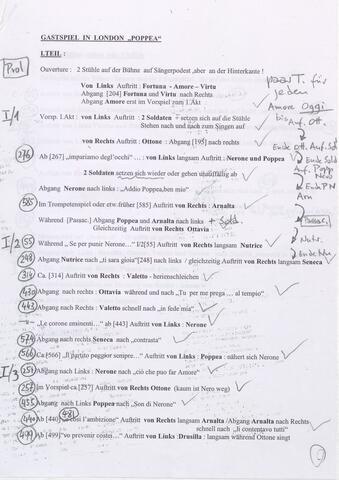 GASTSPIEL IN LONDON „POPPEA“
I.TEIL :
Prol
Ouverture : 2 Stühle auf der Bühne auf Sängerpodest ,aber an der Hinterkante !
paar T. für
jeden
Amore Oggi
bis Auf. Ott.
Von Links Auftritt : Fortuna - Amore – Virtu
Abgang [204] Fortuna und Virtu nach Rechts
Abgang Amore erst im Vorspiel zum 1.Akt
I/1
Vorsp. 1.Akt : von Links Auftritt : 2 Soldaten + setzen sich auf die Stühle
Stehen nach und nach zum Singen auf
von Rechts Auftritt : Ottone : Abgang [195] nach rechts
Ende Ott. Auf. Sol
Ende Sold
Auf. Popp
Nero
276 Ab [267] „impariamo degl'occhi“ ... : von Links langsam Auftritt : Nerone und Poppea
2 Soldaten setzen sich wieder oder gehen unauffällig ab
Ende PN
Arn
Abgang Nerone nach links : „Addio Poppea,ben mio“
585 Im Trompetenspiel oder etw.früher [585] Auftritt von Rechts : Arnalta
Passac.
Während [Passac.] Abgang Poppea und Arnalta nach links + Sold.
Gleichzeitig Auftritt von Rechts Ottavia
I/2 55 Während „ Se per punir Nerone...“ I/2[55] Auftritt von Rechts langsam Nutrice
Notr.
248 Abgang Nutrice nach „ti sara gioia“[248] nach links / gleichzeitig Auftritt von Rechts langsam Seneca
Ende
314 Ca. [314] Auftritt von Rechts : Valetto - herienschleichen
430 Abgang nach rechts : Ottavia während und nach „Tu per me prega ... al tempio“
443 Abgang nach Rechts : Valetto schnell nach „in fede mia“
„Le corone eminenti...“ ab [443] Auftritt von Links : Nerone
574 Abgang nach rechts Seneca nach „contrasta“
566 Ca [566] „Il partito peggior sempre...“ Auftritt von Links : Poppea : nähert sich Nerone
I/3 251 Abgang nach Links : Nerone nach „ciò che puo far Amore“
257 Im Vorspiel ca [257] Auftritt von Rechts Ottone (kaum ist Nero weg)
435 Abgang nach Links Poppea nach „Son di Nerone“
481
440 Ab [440] „o cosi l'ambizione“ Auftritt von Rechts langsam Arnalta /Abgang Arnalta nach Rechts
schnell nach „li contentavo tutti“
499 Ab [499] „vo prevenir costei...“ Auftritt von Links :Drusilla : langsam während Ottone singt